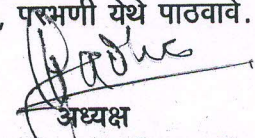 , परभणी येथे पाठवावे.
अध्यक्ष